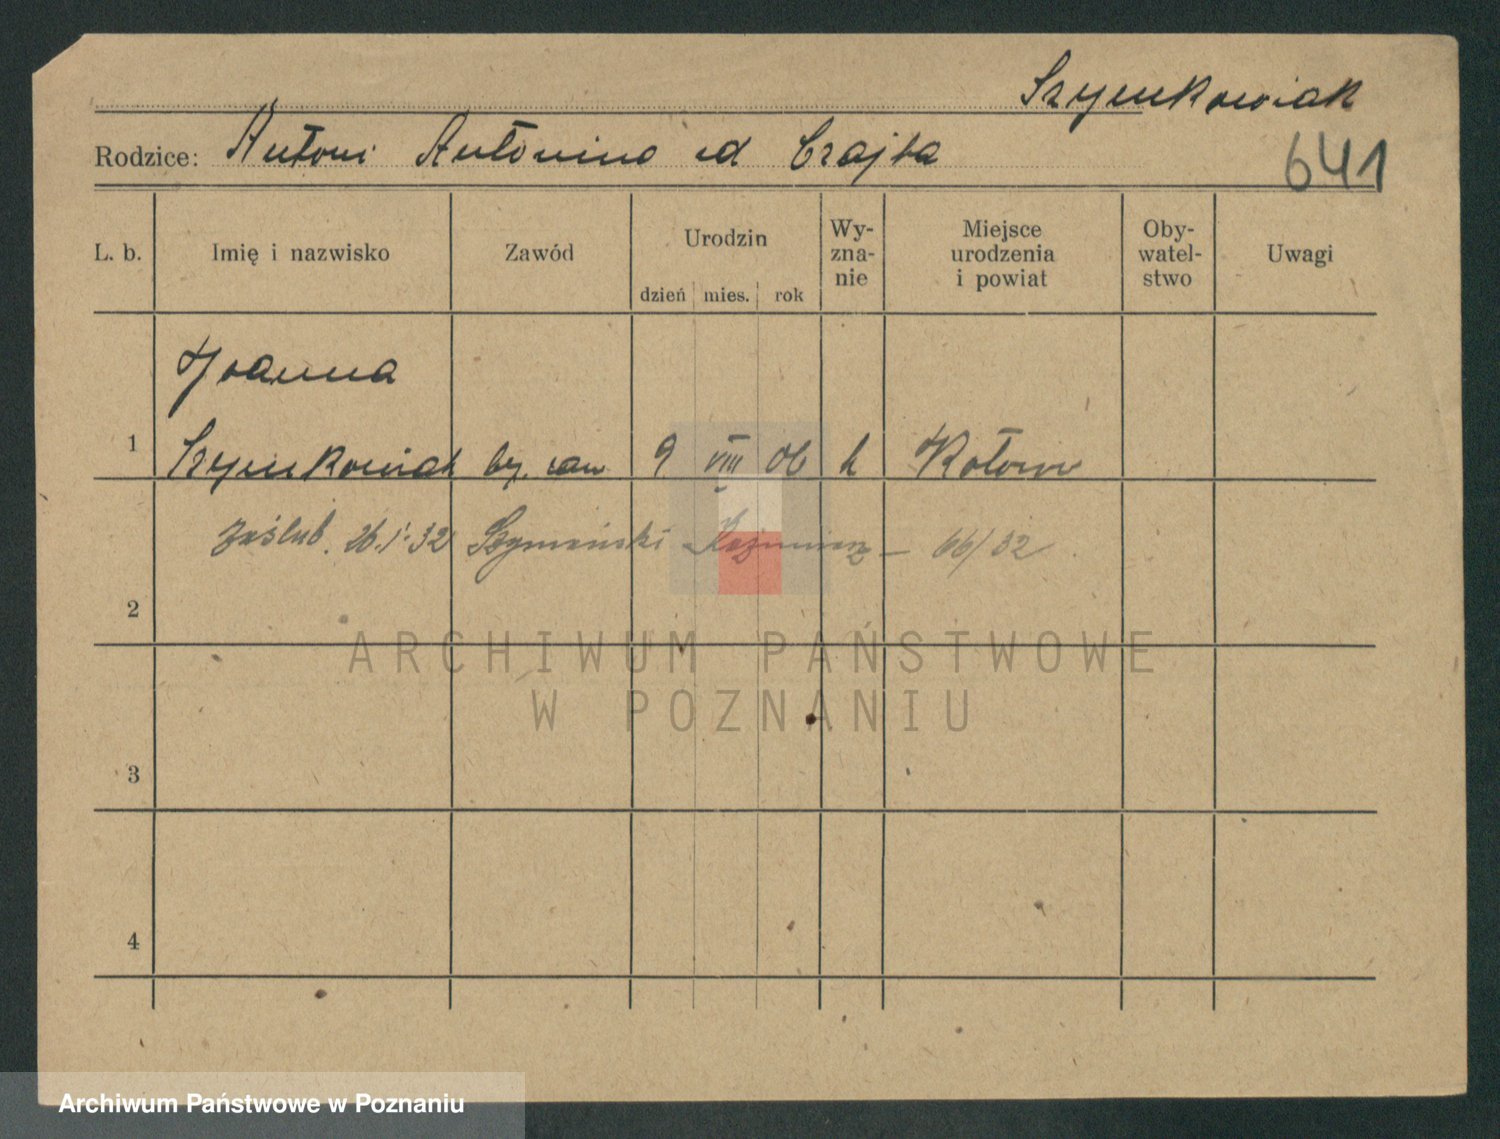 Szymkowiak
Rodzice: Antoni Antonina od Czajka
641
L. b. Imię i nazwisko Zawód Urodzin dzień mies. rok Wy- zna- nie Miejsce urodzenia i powiat Oby- watel- stwo Uwagi
Joanna
1 Szymkowiak 9 VIII 06 k
zaślub. 26.1.32 Szymański Kazimierz — 66/32
2
ARCHIWUM PAŃSTWOWE
W POZNANIU
3
4
Archiwum Państwowe w Poznaniu